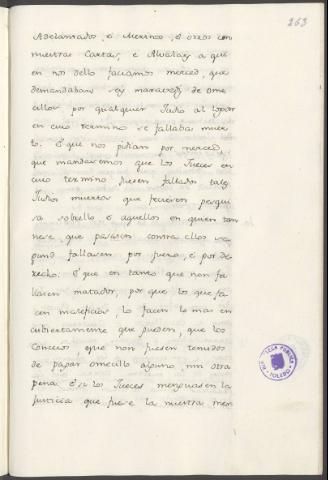 263
Adelantados, é Merinos, é otros con
nuestras Cartas, é Alvalaes a qui
en nos dello faciamos merced, que
demandaban seys maravedis de ome
cillos por qualquier Judio al logar
en cuio termino se fallaba muer
to. E que nos pidian por merced,
que mandasemos que los Jueces en
cuio termino fuesen fallados tales
Judios muertos que ficiesen perqui
sa sobrello, é aquellos en quien tan
nese, que pasasen contra ellos se
gund fallasen por fuero, é por de
recho: E que en tanto que non fa
llasen matador, por que los que fa
cen maleficios lo facen lo mas en
cubiertamente que pueden, que los
Concejos, que non fuesen tenudos
de pagar omecillo alguno, nin otra
pena. E si los Jueces menguasen la
justicia que fuese la nuestra mer
BIBLIOTECA PUBLICA
TOLEDO